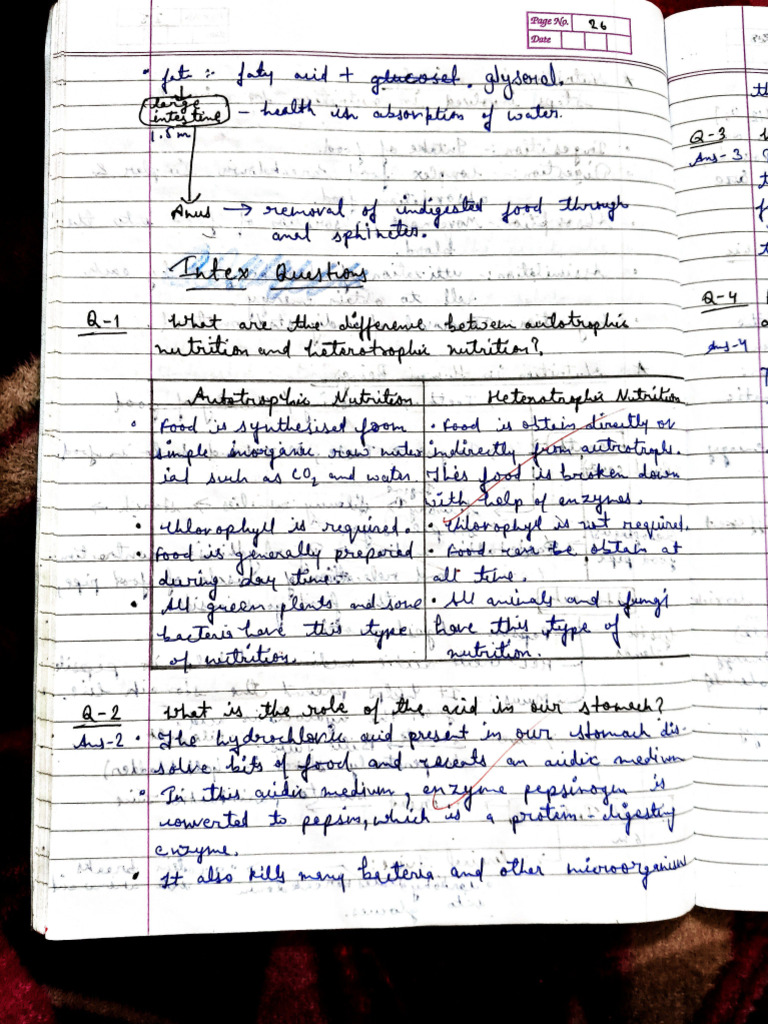 Page No. 26
Date
• fat :- faty acid + glucosel. glyseral.
large intestine - health in absorption of water.
1.5m
Anus → removal of indigested food through
anal sphincter.
Intex Questions
Q-1 What are the difference between autotrophic
nutrition and heterotrophic nutrition?
Autotrophic Nutrition
• Food is synthesised from
simple inorganic raw mater
ial such as CO2 and water.
• Chlorophyll is required.
• Food is generally prepared
during day time.
• All green plants and some
bacteria have this type
of nutrition.
Heterotrophic Nutrition
• Food is obtain directly or
indirectly from autrotrophs.
This food is broken down
with help of enzymes.
• Chlorophyll is not required.
• Food can be obtain at
all time.
• All animals and fungi
have this type of
nutrition.
Q-2 What is the role of the acid in our stomach?
Ans-2 • The hydrochloric acid present in our stomach dis-
solve bits of food and creats an acidic medium
• In this acidic medium, enzyme pepsinogen is
converted to pepsin, which is a protein-digesting
enzyme.
• It also kills many bacteria and other microorganism
Q-3
Ans-3
Q-4
Ans-4